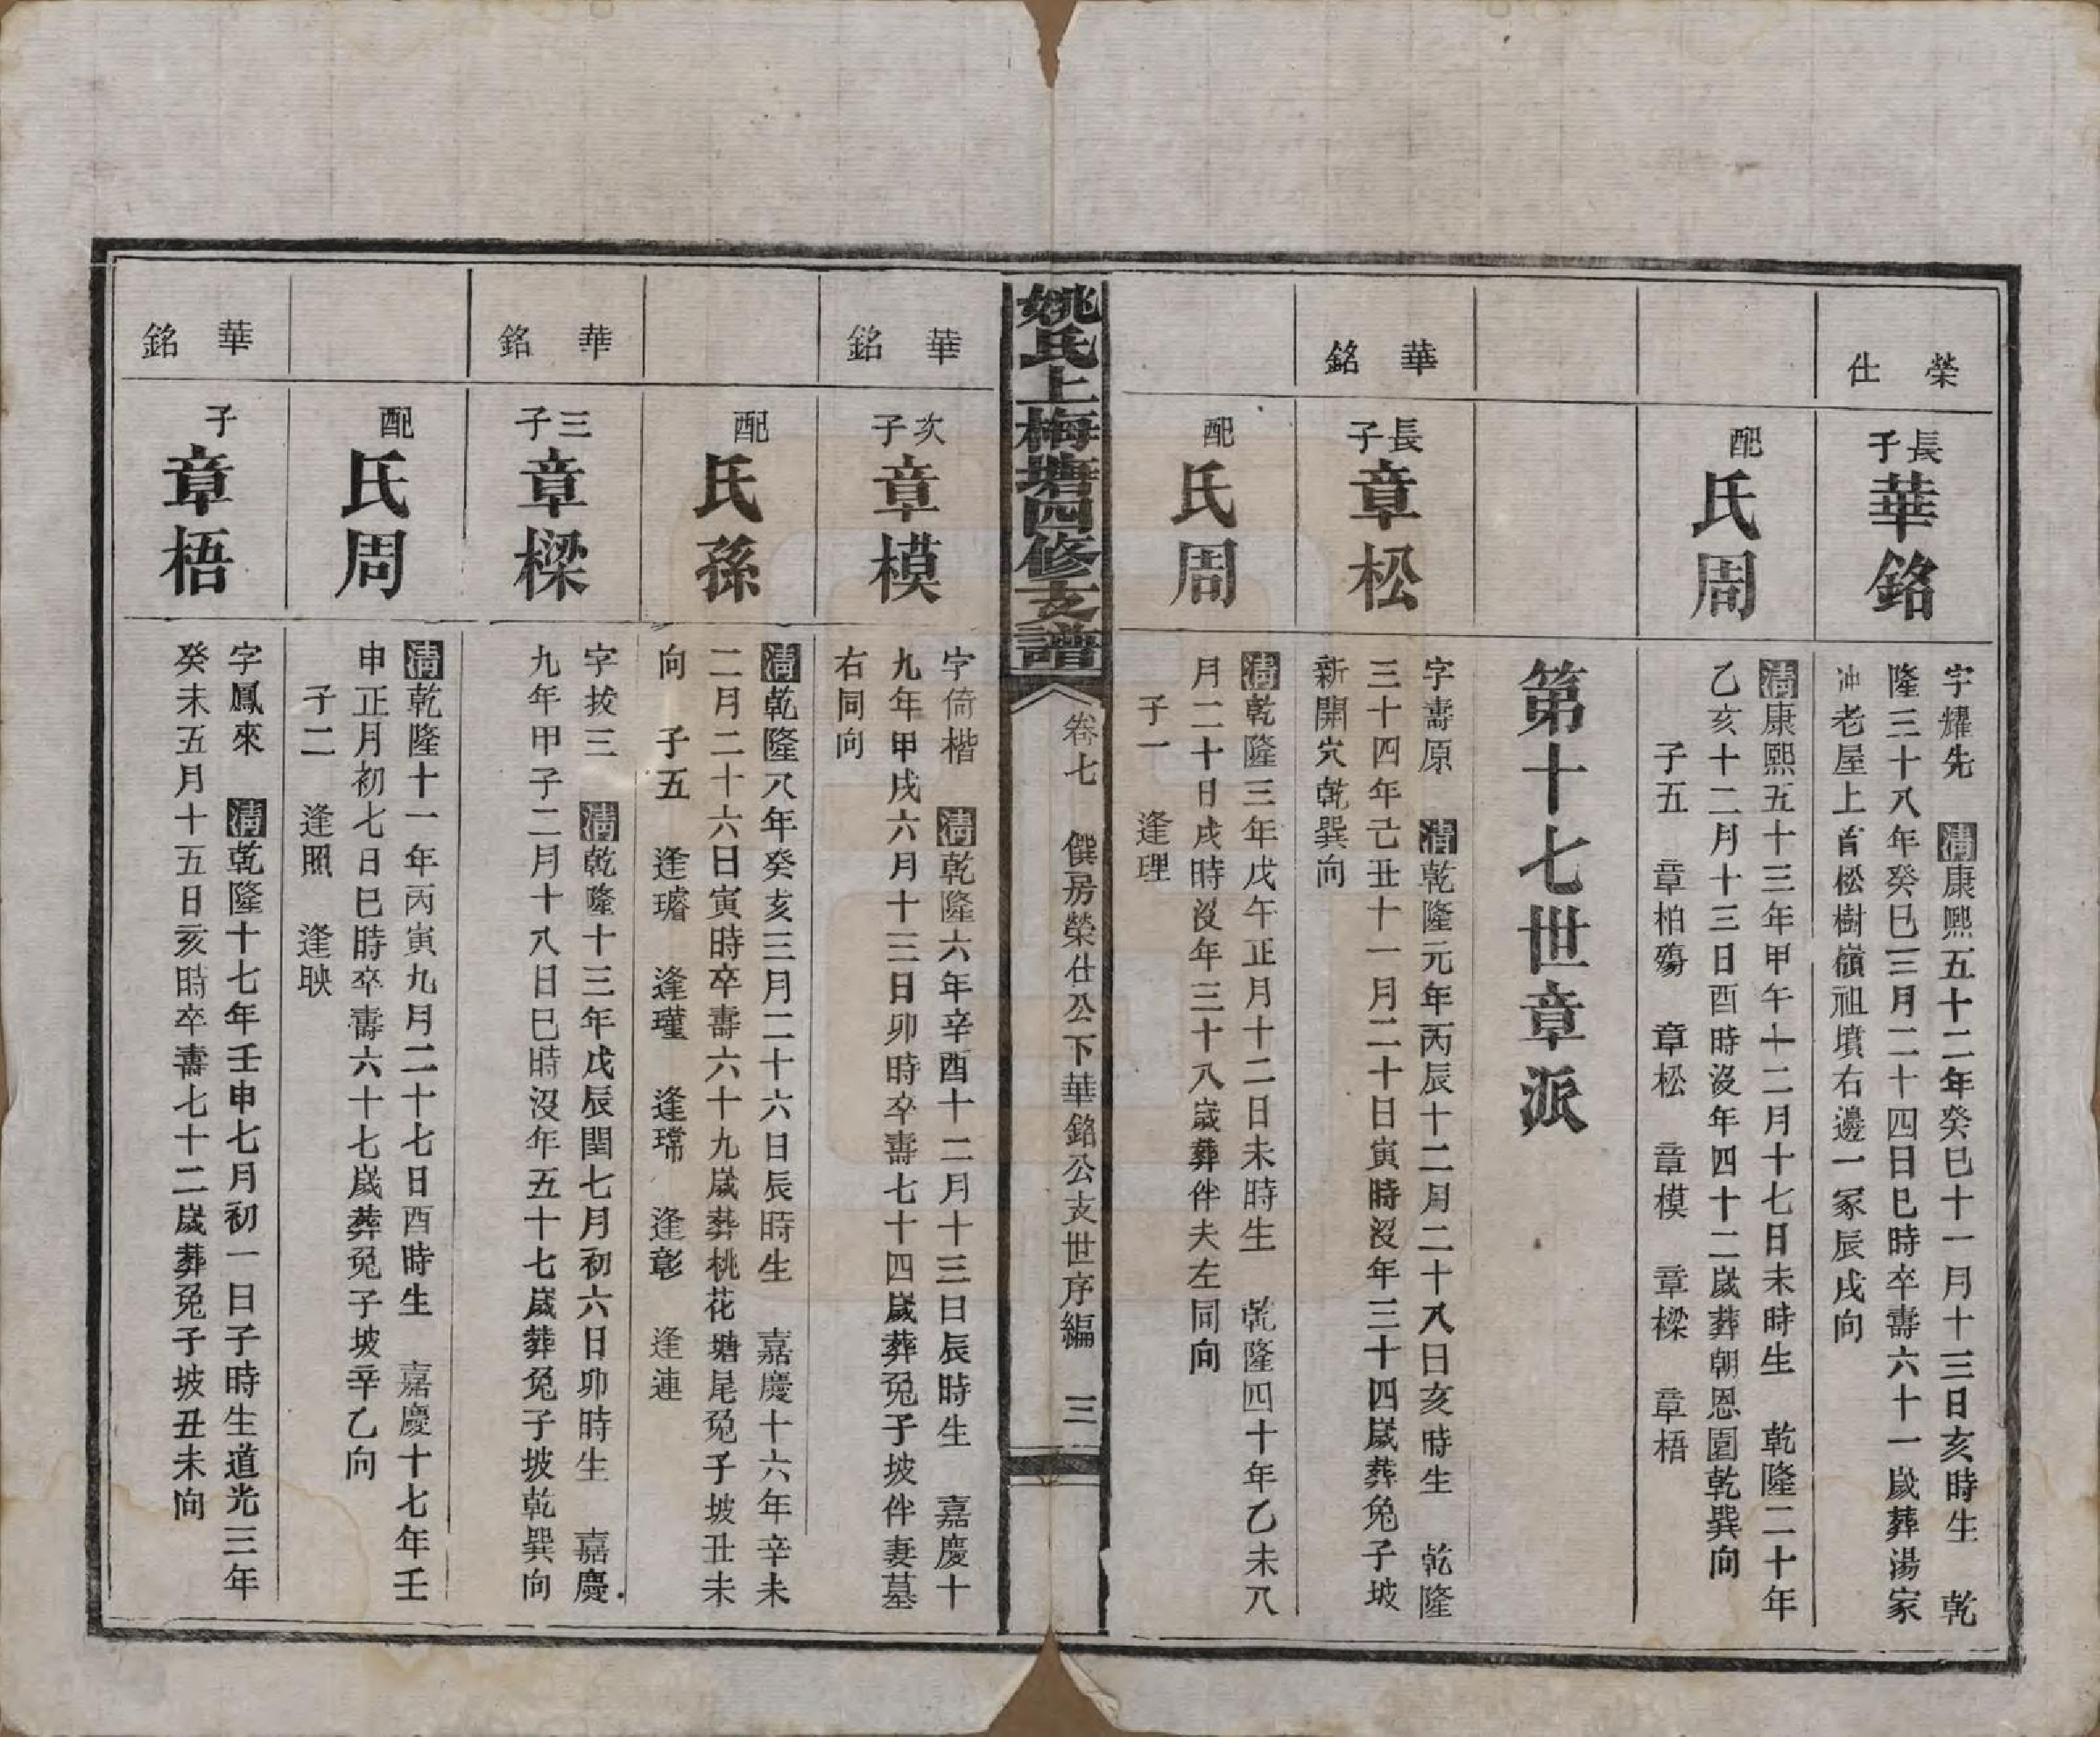 榮仕
長子
華銘
字耀先　清康熙五十二年癸巳十一月十三日亥時生　乾
隆三十八年癸巳三月二十四日巳時卒壽六十一歲葬湯家
冲老屋上首松樹嶺祖墳右邊一冢辰戌向
配
氏周
清康熙五十三年甲午十二月十七日未時生　乾隆二十年
乙亥十二月十三日酉時沒年四十二歲葬朝恩園乾巽向
子五　章柏殤　章松　章模　章樑　章梧
第十七世章派
華銘
長子
章松
字壽原　清乾隆元年丙辰十二月二十八日亥時生　乾隆
三十四年己丑十一月二十日寅時沒年三十四歲葬兔子坡
新開穴乾巽向
配
氏周
清乾隆三年戊午正月十二日未時生　乾隆四十年乙未八
月二十日戌時沒年三十八歲葬伴夫左同向
子一　逢理
姚氏上梅塘四修支譜
卷七　僎房榮仕公下華銘公支世序編　三
華銘
次子
章模
字倚楷　清乾隆六年辛酉十二月十三日辰時生　嘉慶十
九年甲戌六月十三日卯時卒壽七十四歲葬兔子坡伴妻墓
右同向
配
氏孫
清乾隆八年癸亥三月二十六日辰時生　嘉慶十六年辛未
二月二十六日寅時卒壽六十九歲葬桃花塘尾兔子坡丑未
向　子五　逢璿　逢瑾　逢瑺　逢彰　逢連
華銘
三子
章樑
字拔三　清乾隆十三年戊辰閏七月初六日卯時生　嘉慶
九年甲子二月十八日巳時沒年五十七歲葬兔子坡乾巽向
配
氏周
清乾隆十一年丙寅九月二十七日酉時生　嘉慶十七年壬
申正月初七日巳時卒壽六十七歲葬兔子坡辛乙向
子二　逢照　逢映
華銘
子
章梧
字鳳來　清乾隆十七年壬申七月初一日子時生道光三年
癸未五月十五日亥時卒壽七十二歲葬兔子坡丑未向